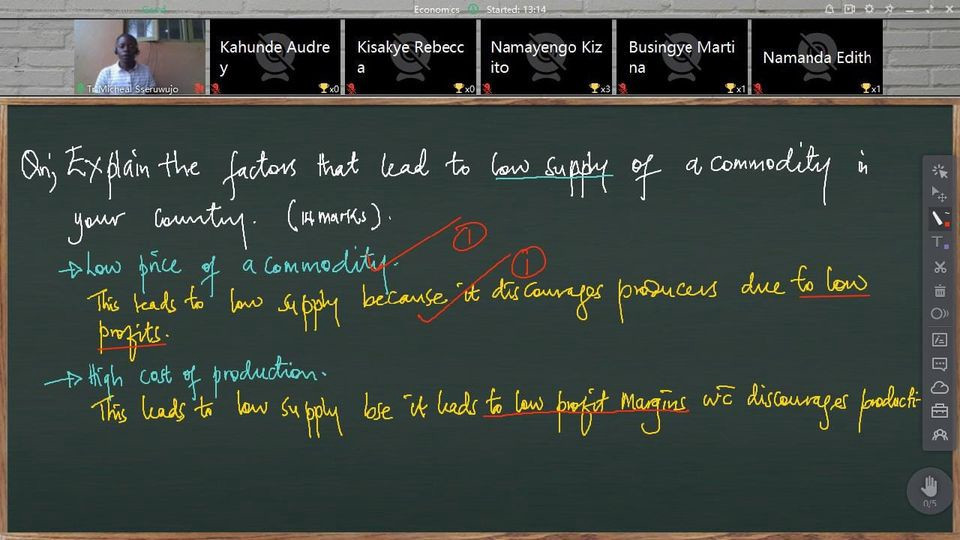 Economics Started: 13:14
Tr. Micheal Sseruwujo
Kahunde Audre
y
x0
Kisakye Rebecc
a
x0
Namayengo Kiz
ito
x3
Busingye Marti
na
x1
Namanda Edith
x1
Qn; Explain the factors that lead to low supply of a commodity in
your country. (14 marks).
→ Low price of a commodity. ①
This leads to low supply because it discourages producers due to low ①
profits.
→ High cost of production.
This leads to low supply bse it leads to low profit margins wc discourages producti
0/5